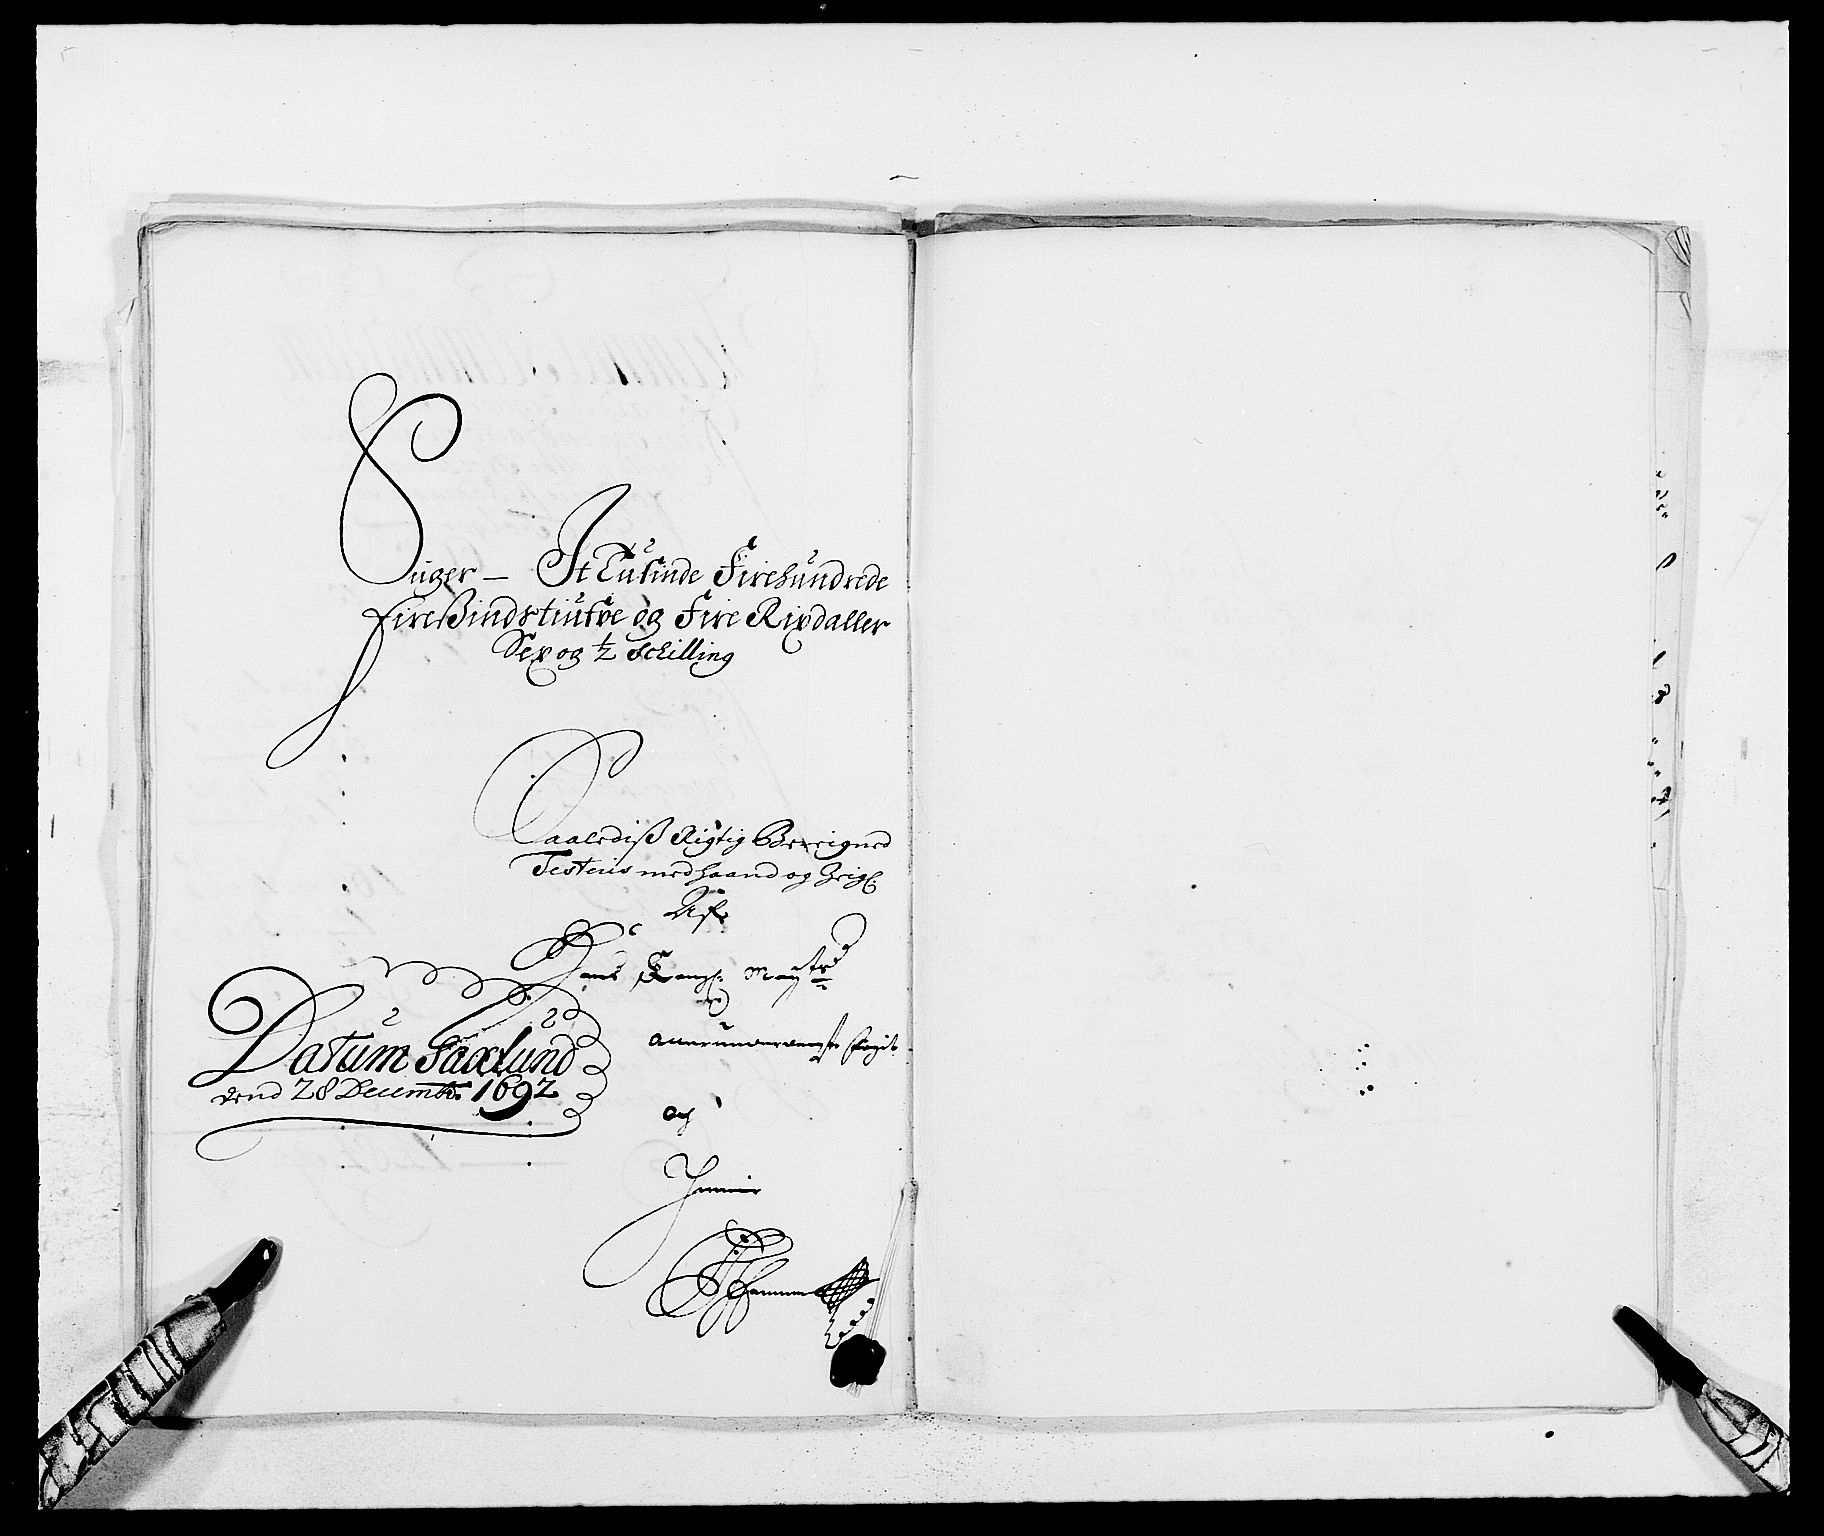 Suger — Et Tusinde Firehundrede
firesindstiufve og Fire Rixdaller
Sex og ½ Schilling
Saaledis Rigtig Beregned
Testeris med Haand og Zeigl:
Af
Hans Kongl: Mayts
allerunderdanigste
og
Datum Saxlund
dend 28 Decembr: 1692